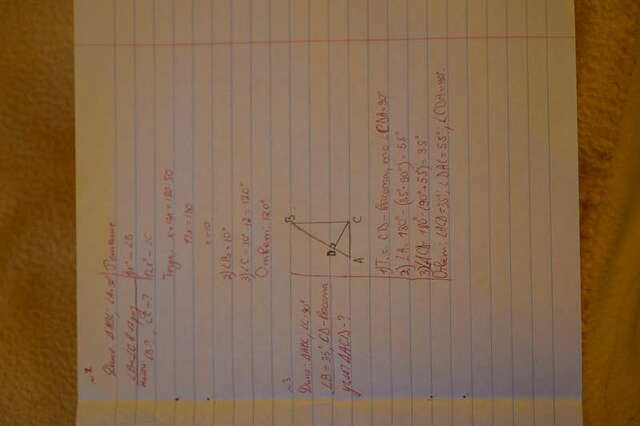 №2
Дано: ΔABC, ∠A=
Решение
∠B<∠C в 12 раз
x° - ∠B
Найти: ∠B-?, ∠C-?
12x° - ∠C
Тогда x+12x=180-50
13x=130
x=10
2) ∠B=10°
3) ∠C=10°·12=120°
Ответ: 120°
№3
Дано: ΔABC, ∠C=90°
∠B=35°, CD-высота
углы ΔACD-?
B
D
A
C
1) Т.к. CD-высота, то ∠CDA=90°
2) ∠A=180°-(35°+90°)=55°
3) ∠ACD=180°-(90°+55)=35°
Ответ: ∠ACD=35°; ∠DAC=55°, ∠CDA=90°.